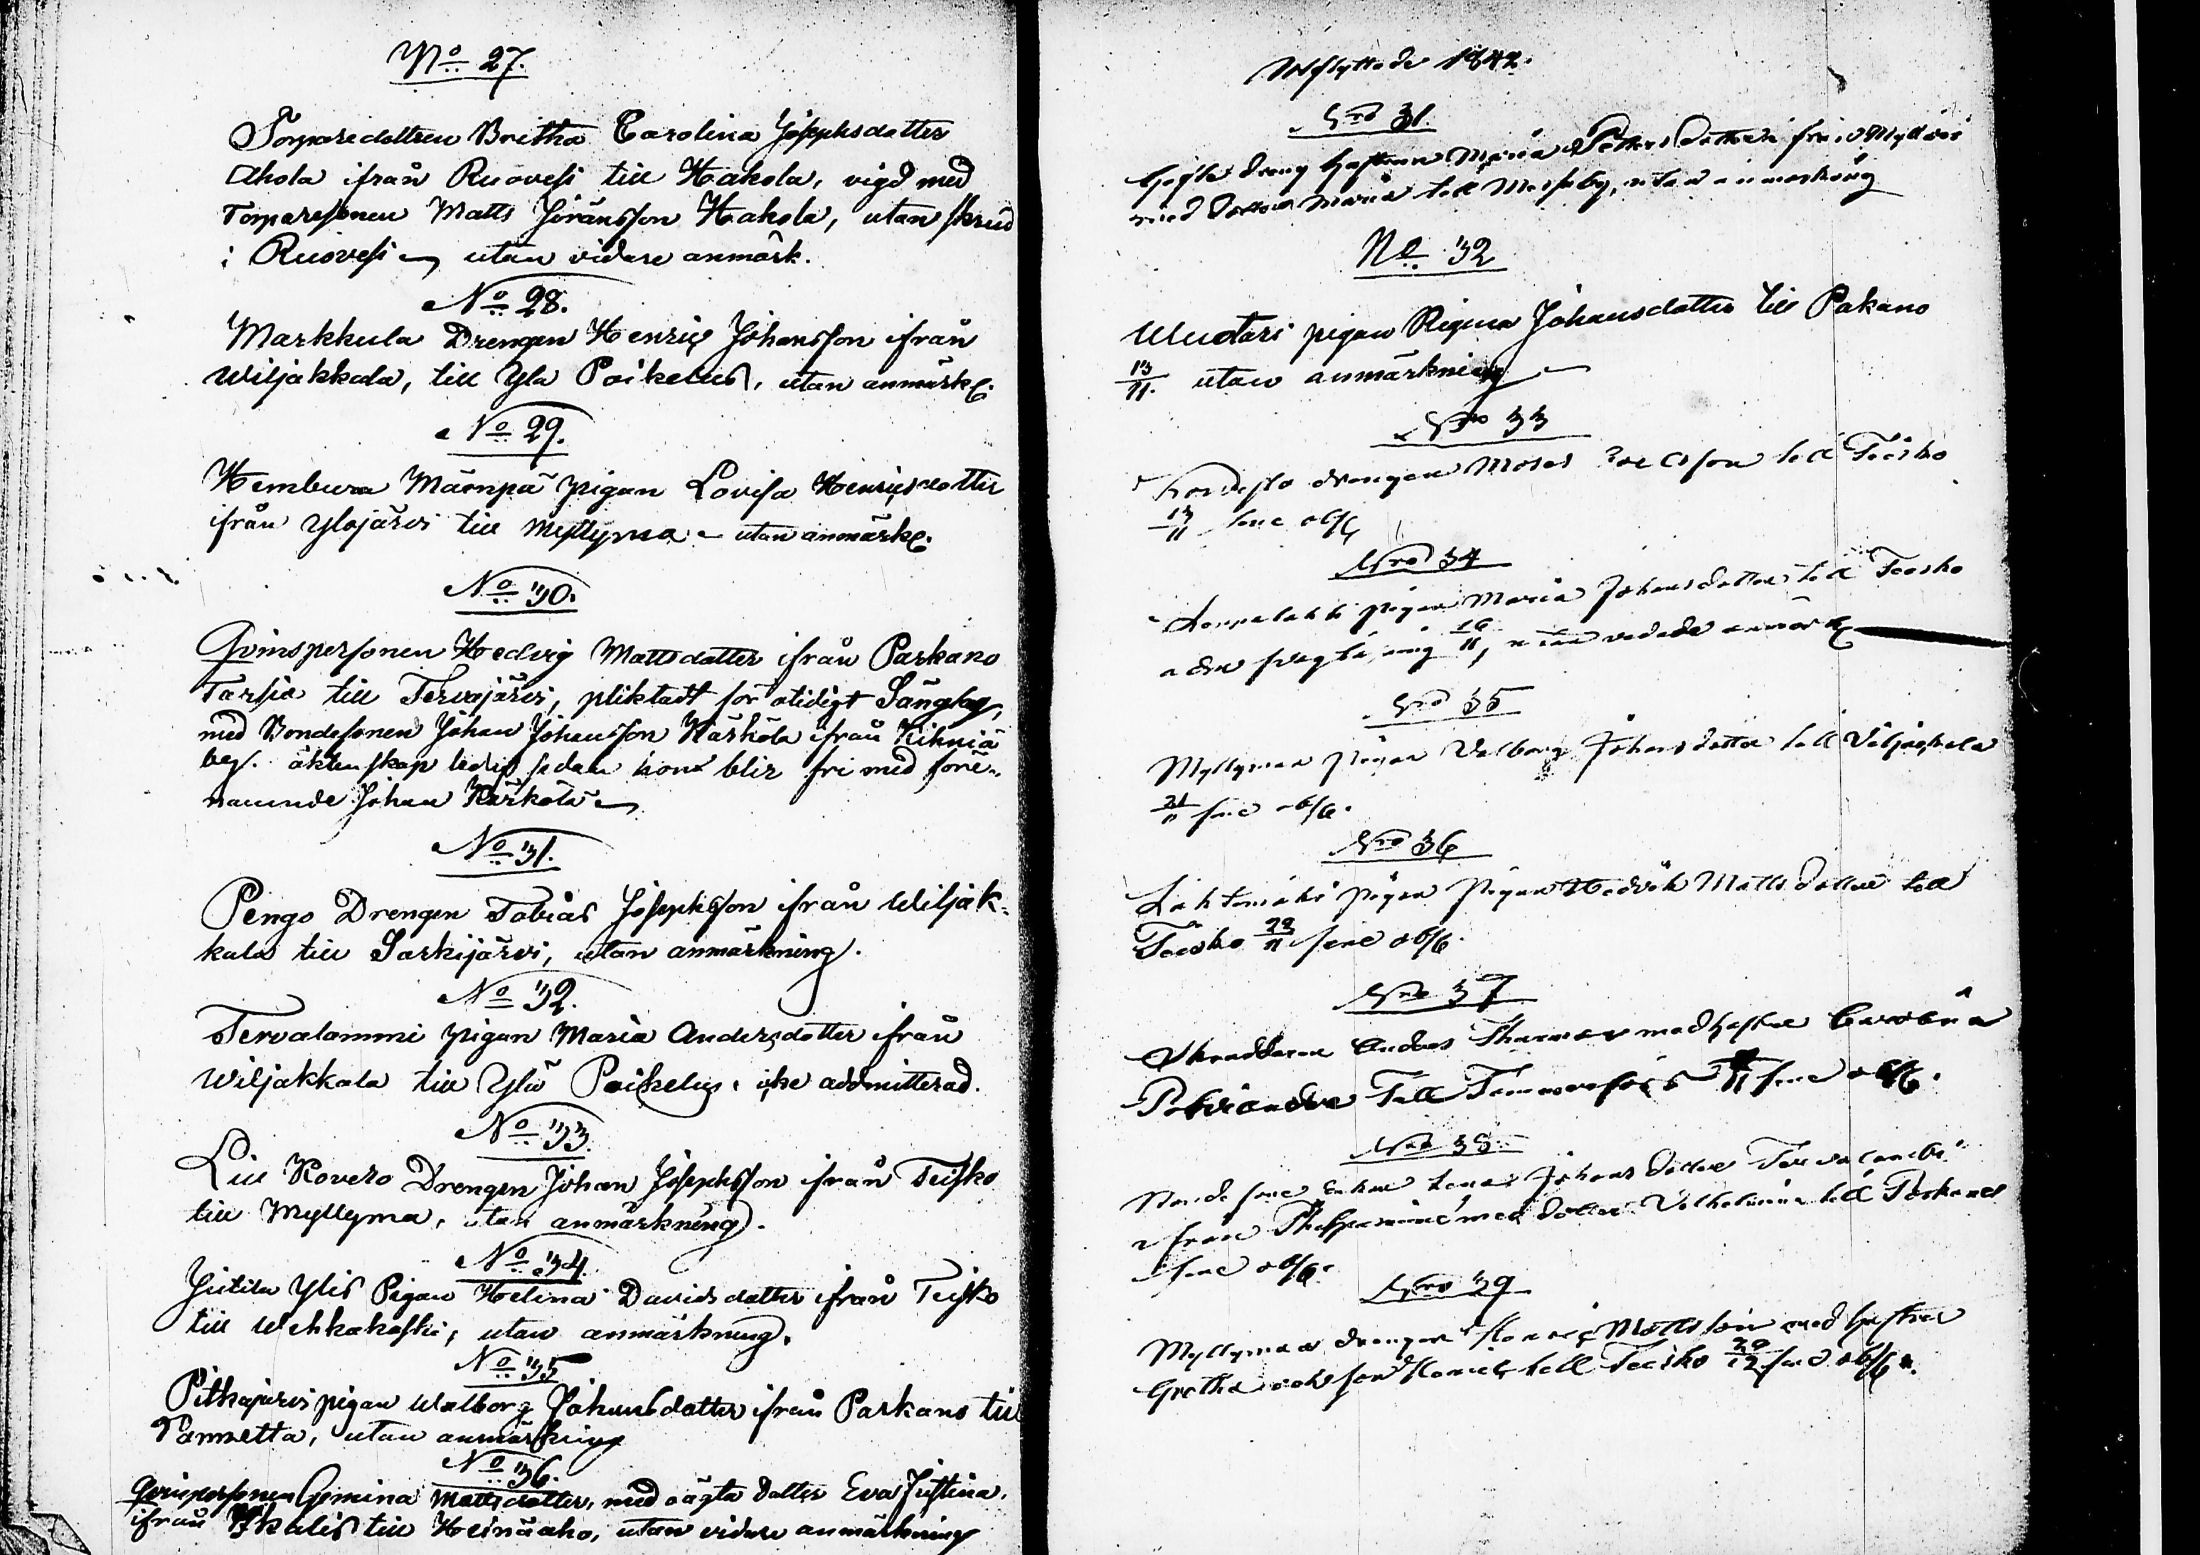 No 27.
Torparedottren Britha Carolina Josephsdotter
Ahola ifrån Ruovesi till Hakola, vigd med
Torparesonen Matts Jöransson Hakola, utan skrud
i Ruovesi utan vidare anmärk.
No 28.
Markkula Drengen Henric Johansson ifrån
Wiljakkala, till Ylä Poikelus, utan anmärk.
No 29.
Membura Mäenpä pigan Lovisa Henricsdotter
ifrån Ylöjärvi till Myllyma utan anmärk.
No 30.
Qvinspersonen Hedvig Mattsdotter ifrån Parkano
Tarsia till Tervajärvi, pliktadt för otidigt Sänglag,
med Bondesonen Johan Johansson Käskölä ifrån Kihniä
beg. äktenskap ledig sedan hon blir fri med före-
namnde Johan Käskölä
No 31.
Pengo Drengen Tobias Josephsson ifrån Wiljak-
kala till Sarkijärvi, utan anmärkning.
No 32.
Tervalammi pigan Maria Andersdotter ifrån
Wiljakkala till Ylä Poikelus, icke addmitterad.
No 33.
Lill Kovero Drengen Johan Josephsson ifrån Teisko
till Myllyma, utan anmärkning.
No 34.
Jutila Ylis Pigan Helena Davidsdotter ifrån Teisko
till Wehkakoski, utan anmärkning.
No 35
Pitkajärvi pigan Walborg Johansdotter ifrån Parkano till
Pannetta, utan anmärkning
No 36.
Qvinspersonen Gemina Mattsdotter, med oägta dotter Eva Justina,
ifrån Ikalis till Heinäaho, utan vidare anmärkning
Utflyttade 1842.
Nro 31.
Maria Petters dotter från
med dottren Maria till Messuby, utan anmärkning
No 32
pigan Regina Johansdotter till Pakano
13/11. utan anmärkning
Nro 33
drengen Moses till Teisko
13/11 sine obs
Nro 34
pigan Maria Johansdotter till Teisko
16/11, utan anmärk
Nro 35
Myllymaa pigan Valborg Johansdotter till Viljackala
21/11 sine obs.
Nro 36
Lahtomäki pigan pigan Hedvik Matts dotter till
Teisko 29/11 sine obs.
Nro 37
Skraddaren Anders med hustru Carolina
till Tammerfors 11 sine obs.
Nro 38
enkan Lena Johans dotter Tervalambi
ifrån med dotter Vilhelmina till
sine obs.
Nro 39
Myllymaa drengen Henric Mattsson med hustru
Gretha och son Henric till Teisko 20/12 sine obs.